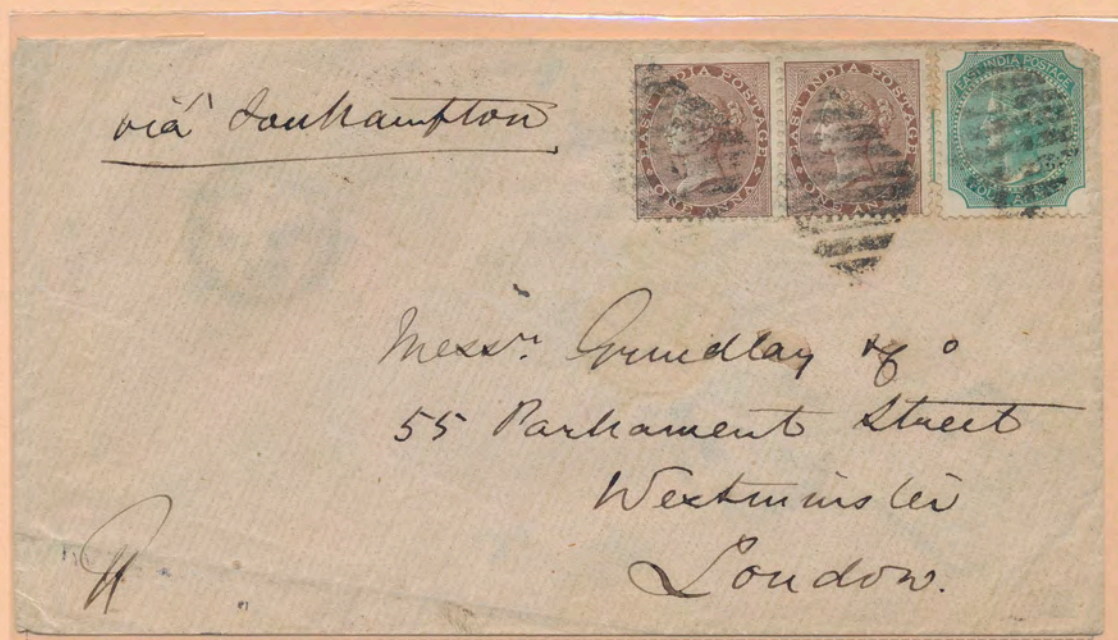 via Southampton
EAST INDIA POSTAGE
ONE ANNA
EAST INDIA POSTAGE
ONE ANNA
EAST INDIA POSTAGE
Messrs. Grindlay & Co
55 Parliament Street
Westminster
London.